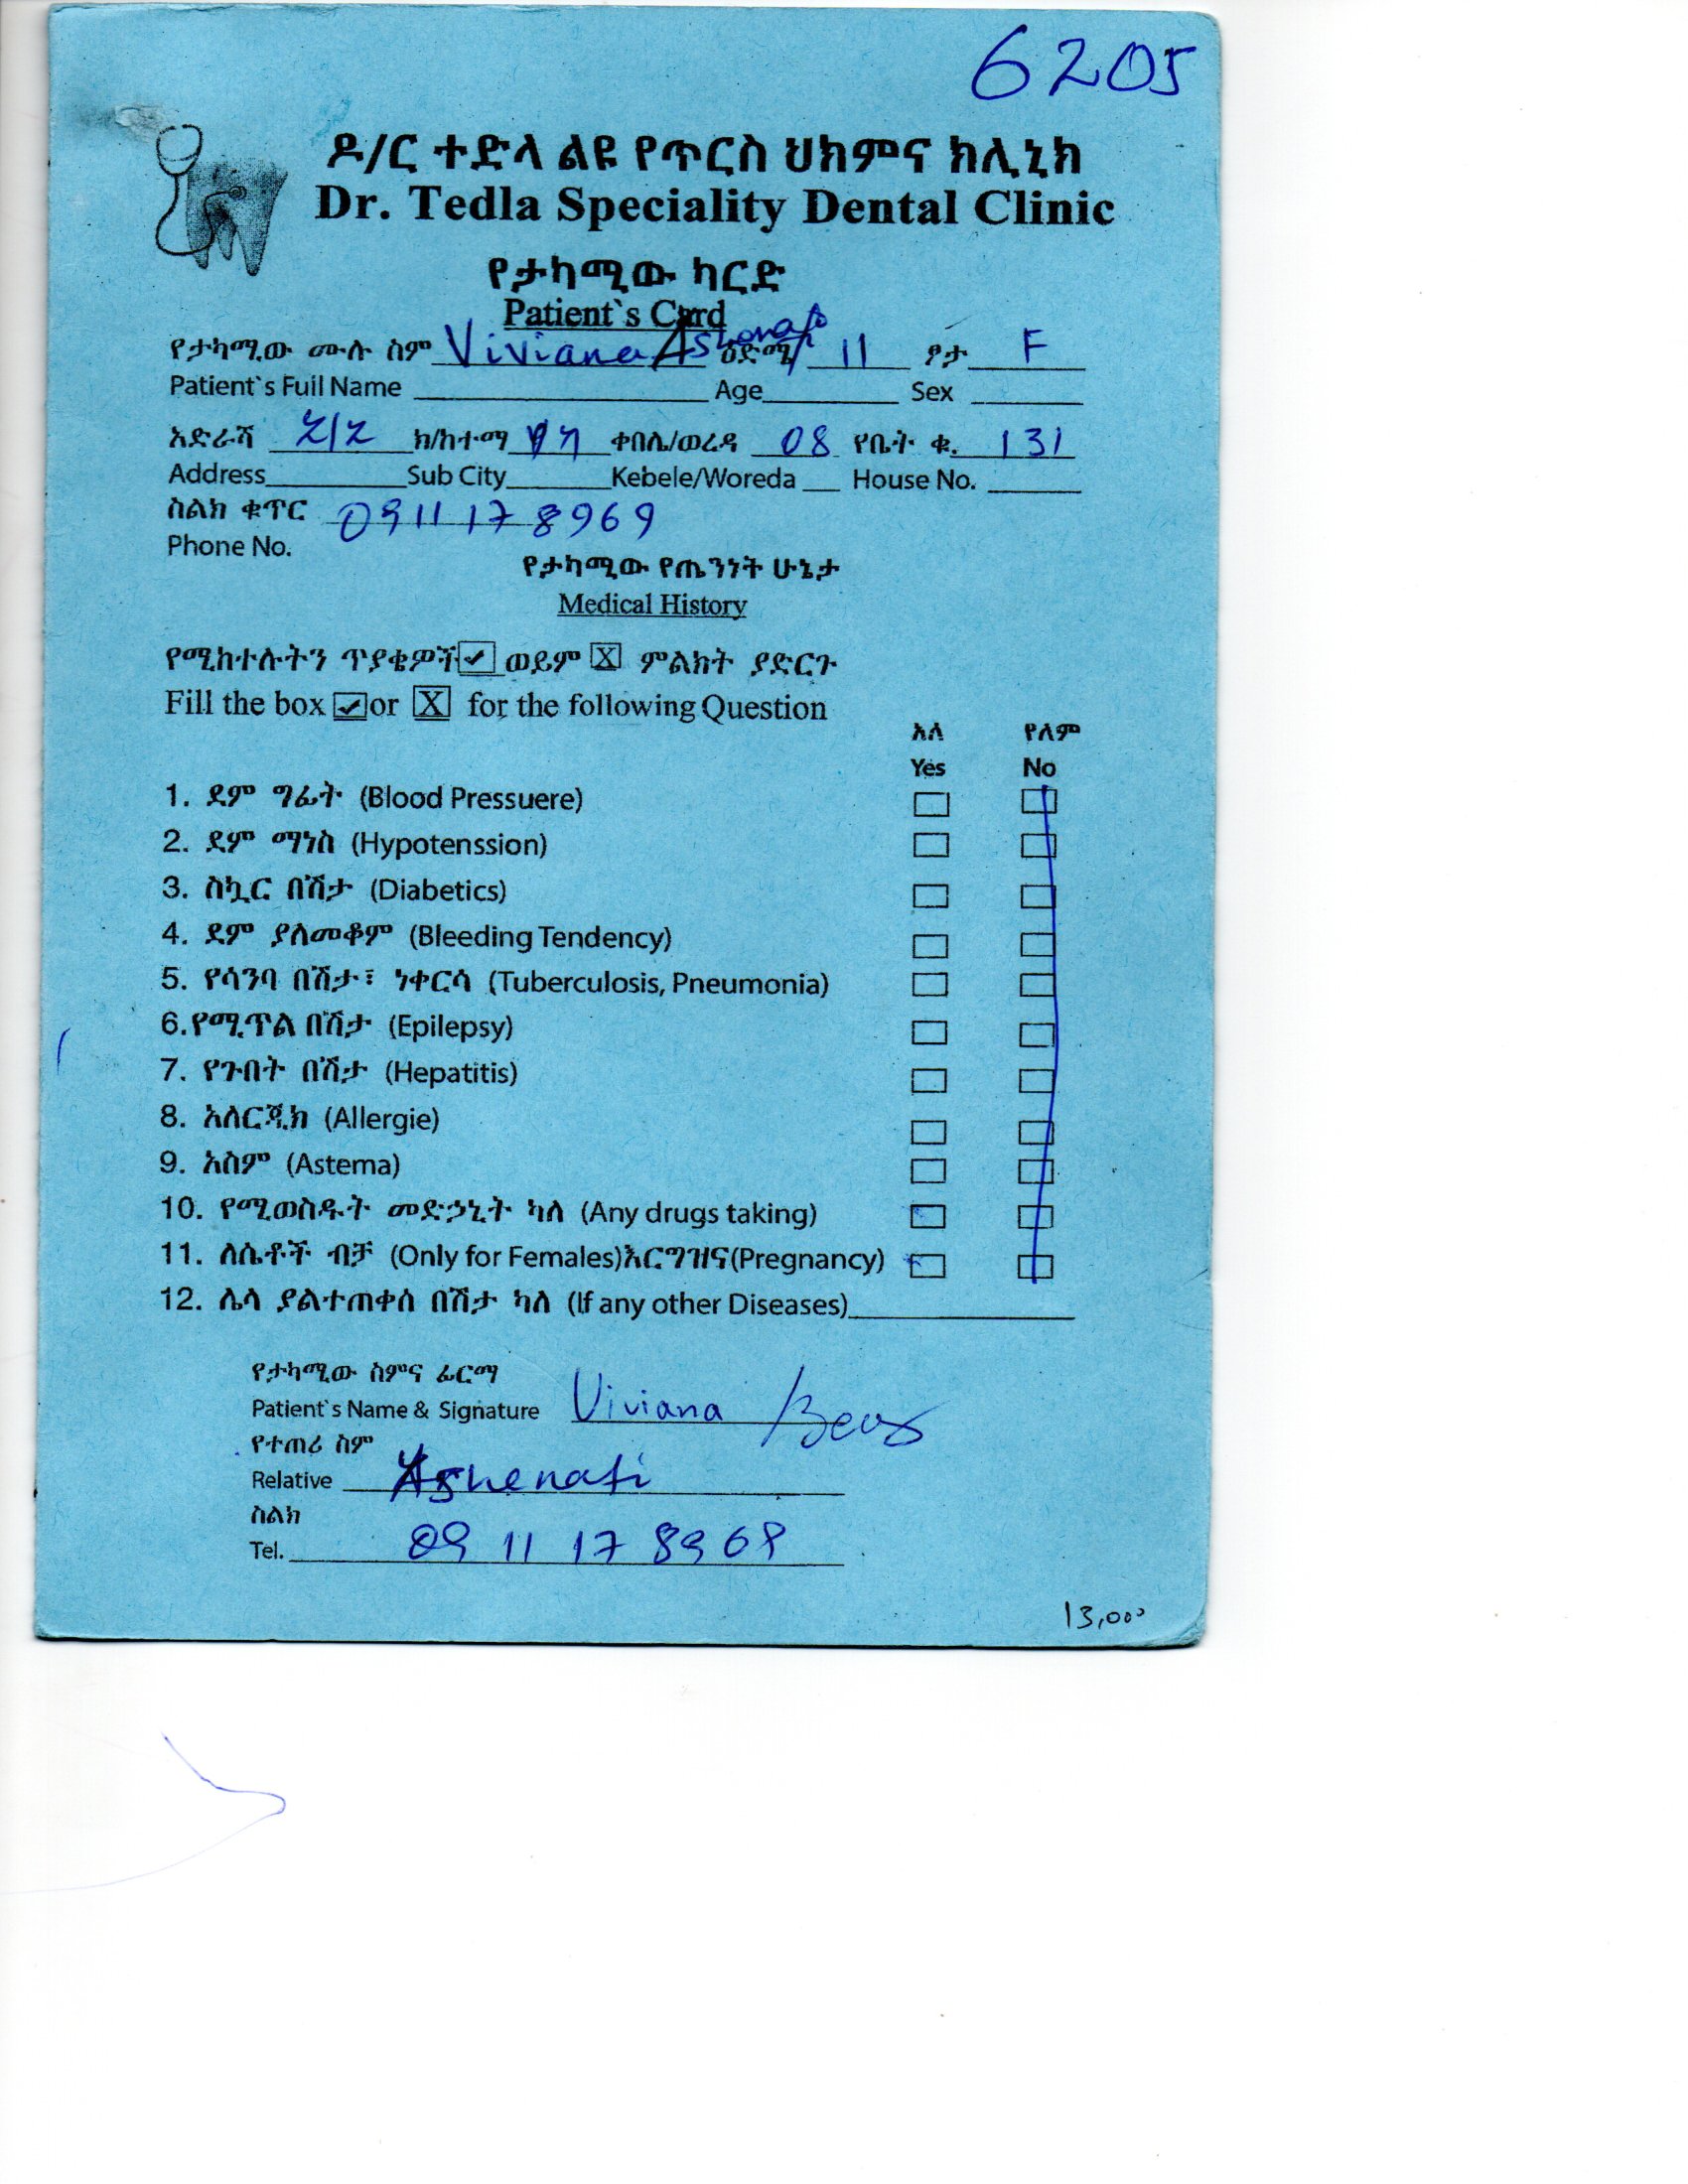 6205
ዶ/ር ተድላ ልዩ የጥርስ ህክምና ክሊኒክ
Dr. Tedla Speciality Dental Clinic
የታካሚው ካርድ
Patient`s Card
የታካሚው ሙሉ ስም Viviana Ashenafi ዕድሜ 11 ፆታ F
Patient`s Full Name Age Sex
አድራሻ ክ/ከተማ ቀበሌ/ወረዳ 08 የቤት ቁ. 131
Address Sub City Kebele/Woreda House No.
ስልክ ቁጥር 0911178969
Phone No.
የታካሚው የጤንነት ሁኔታ
Medical History
የሚከተሉትን ጥያቄዎች ✓ ወይም X ምልክት ያድርጉ
Fill the box ✓ or X for the following Question
አለ የለም
Yes No
1. ደም ግፊት (Blood Pressuere)
2. ደም ማነስ (Hypotenssion)
3. ስኳር በሽታ (Diabetics)
4. ደም ያለመቆም (Bleeding Tendency)
5. የሳንባ በሽታ፣ ነቀርሳ (Tuberculosis, Pneumonia)
6.የሚጥል በሽታ (Epilepsy)
7. የጉበት በሽታ (Hepatitis)
8. አለርጂክ (Allergie)
9. አስም (Astema)
10. የሚወስዱት መድኃኒት ካለ (Any drugs taking)
11. ለሴቶች ብቻ (Only for Females)እርግዝና(Pregnancy)
12. ሌላ ያልተጠቀሰ በሽታ ካለ (If any other Diseases)
የታካሚው ስምና ፊርማ
Patient`s Name & Signature Viviana
የተጠሪ ስም
Relative Ashenafi
ስልክ
Tel. 09 11 17 89 69
13,000